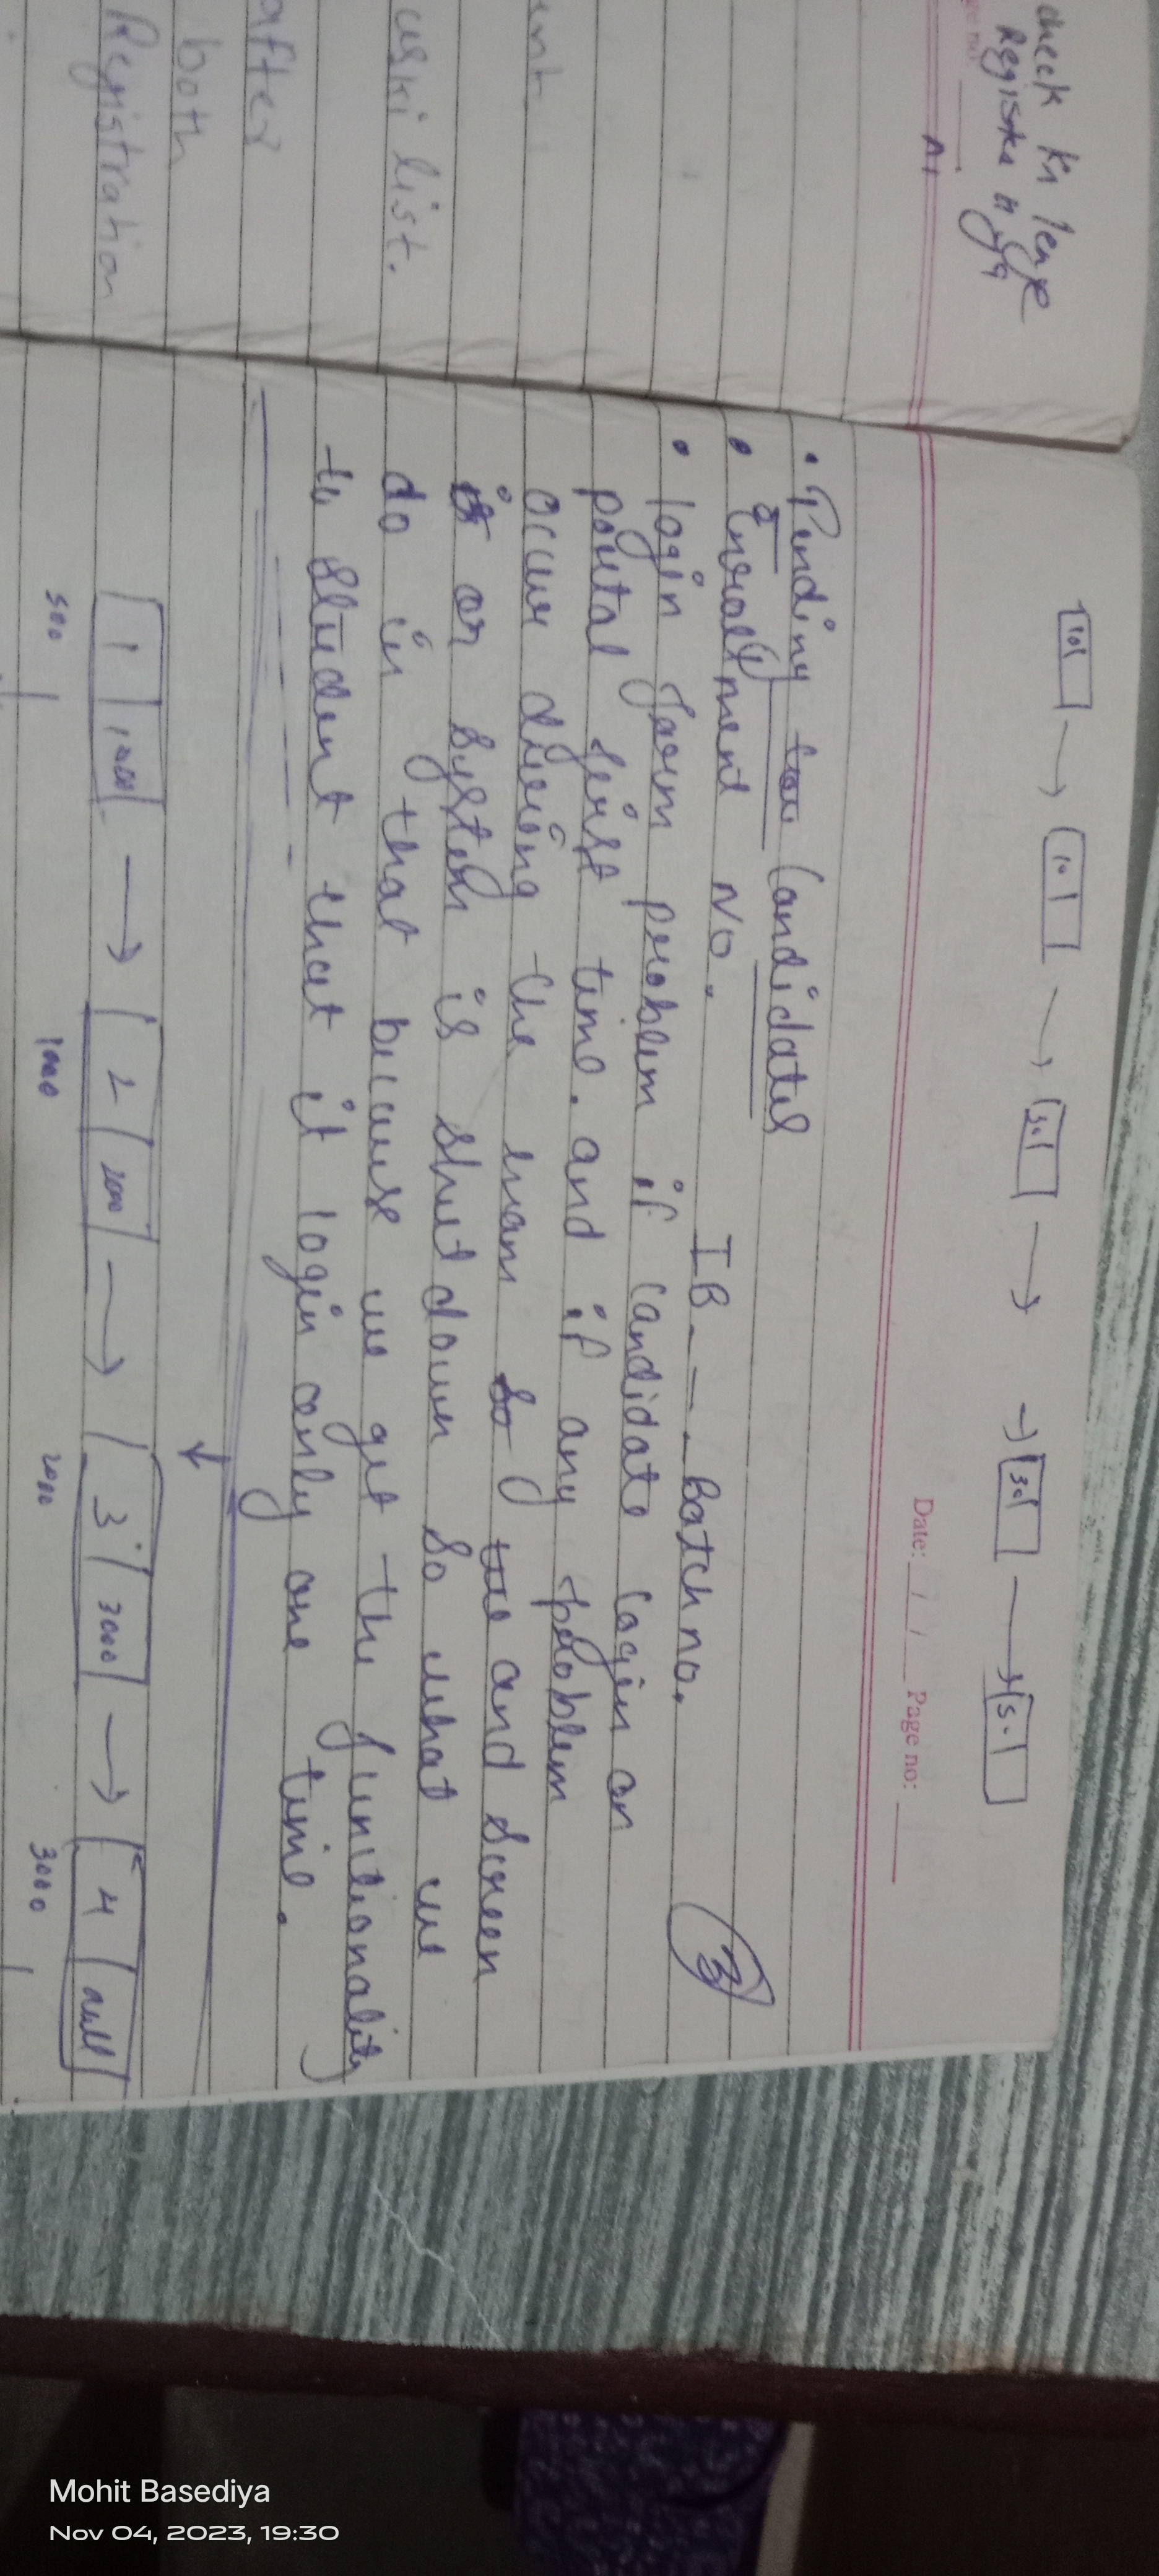 check Kr lenge
Registra
ge no.
ent
uski list.
after
both
Registration
10 10 30 50
Date: / / Page no:
• Pending Candidates
• Enrollment No. IB _ _ _ Batch no.
3
• login form problem if candidate login on
portal first time. and if any problem
occur during the exam so and screen
or system is shut down so what we
do in that because we get the functionality
to student that it login only one time.
1 1000 2 2000 3 3000 4 null
500 1000 2000 3000
Mohit Basediya
Nov 04, 2023, 19:30